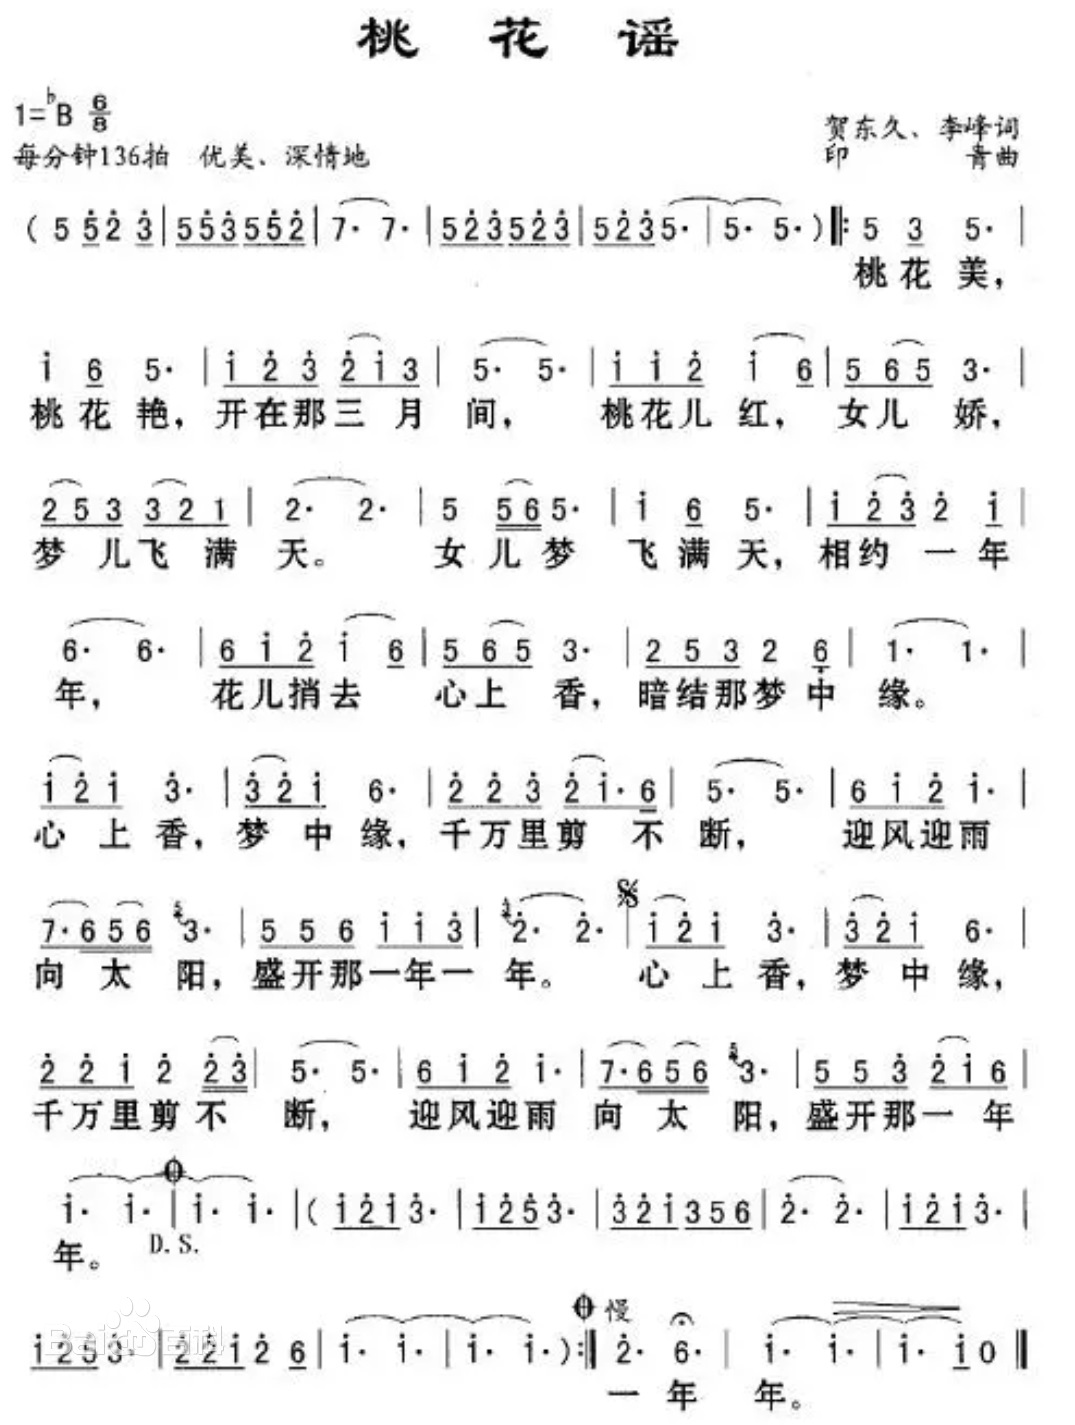 桃花谣
1=♭B 6/8
贺东久、李峰词
每分钟136拍 优美、深情地
印青曲
桃花美，
桃花艳，开在那三月间，桃花儿红，女儿娇，
梦儿飞满天。女儿梦飞满天，相约一年
年，花儿捎去心上香，暗结那梦中缘。
心上香，梦中缘，千万里剪不断，迎风迎雨
向太阳，盛开那一年一年。心上香，梦中缘，
千万里剪不断，迎风迎雨向太阳，盛开那一年
年。 D.S.
慢
一年年。
Baidu百科